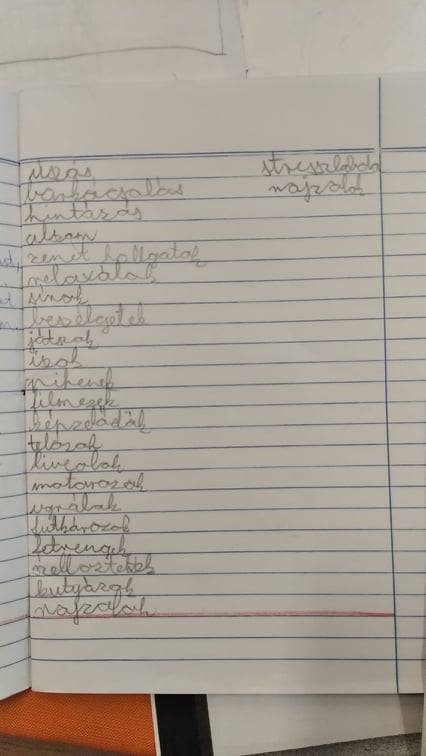 úszás
barkácsolás
hintázás
alszom
zenét hallgatok
relaxálok
sírok
beszélgetek
játszok
iszok
pihenek
filmezek
telózok
liveolok
motorozok
ugrálok
futkározok
fetrengek
kutyázok
rajzolok
stresszlabda
rajzolok